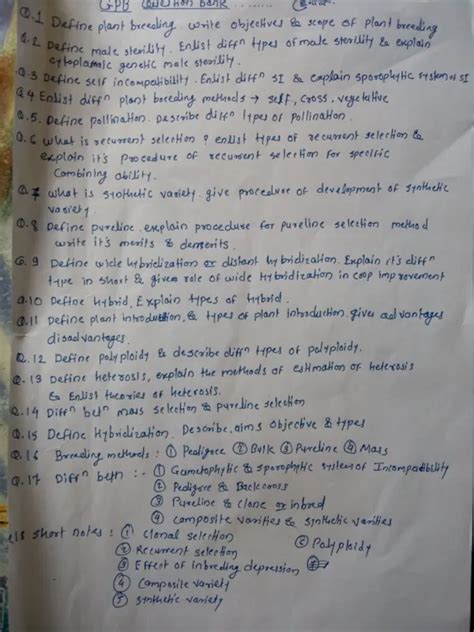 GPB Question Bank ........
Q.1 Define plant breeding. write objectives & scope of plant breeding
Q.2 Define male sterility. Enlist diffn types of male sterility & explain
cytoplasmic genetic male sterility.
Q.3 Define self incompatibility. Enlist diffn SI & explain sporophytic system of SI
Q.4 Enlist diffn plant breeding methods → self, cross, vegetative
Q.5. Define pollination. Describe diffn types of pollination.
Q.6 what is recurrent selection ? enlist types of recurrent selection &
explain it's procedure of recurrent selection for specific
Combining ability.
Q.7 what is synthetic variety. give procedure of development of synthetic
variety.
Q.8 Define pureline. explain procedure for pureline selection method
write it's merits & demerits.
Q.9 Define wide hybridization or distant hybridization. Explain it's diffn
type in short & given role of wide hybridization in crop improvement
Q.10 Define hybrid, Explain types of hybrid.
Q.11 Define plant introduction, & types of plant introduction. gives advantages
disadvantages.
Q.12 Define polyploidy & describe diffn types of polyploidy.
Q.13 Define heterosis, explain the methods of estimation of heterosis
& Enlist theories of heterosis.
Q.14 Diffn betn mass selection & pureline selection
Q.15 Define hybridization. Describe, aims objective & types
Q.16 Breeding methods : ① Pedigree ② Bulk ③ Pureline ④ Mass
Q.17 Diffn betn :- ① Gametophytic & sporophytic system of Incompatibility
② Pedigree & Backcross
③ Pureline & clone or inbred
④ composite varities & synthetic varities
Q.18 short notes : ① clonal selection
② Recurrent selection
⑥ Polyploidy
③ Effect of inbreeding depression
④ Composite variety
⑤ synthetic variety